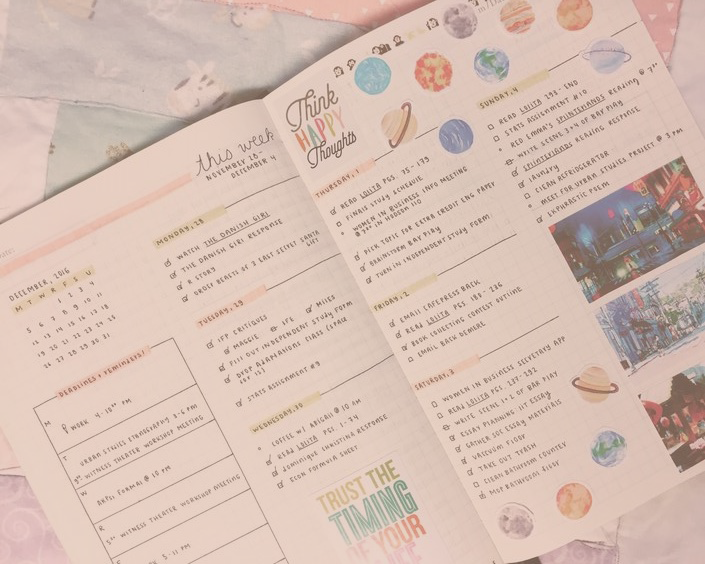 this week
NOVEMBER 28-
DECEMBER 4
DECEMBER, 2016
M T W R F S U
1 2 3 4
5 6 7 8 9 10 11
12 13 14 15 16 17 18
19 20 21 22 23 24 25
26 27 28 29 30 31
DEADLINES + REMINDERS!
M
WORK 4-10
T
URBAN STUDIES ETHNOGRAPHY 3-6 PM
WITNESS THEATER WORKSHOP MEETING
W
AKPSI FORMAL @ 10 PM
R
WITNESS THEATER WORKSHOP MEETING
WORK 5-11 PM
MONDAY, 28
WATCH THE DANISH GIRL
THE DANISH GIRL RESPONSE
R STORY
ORDER BEASTS OF 3 EAST SECRET SANTA
GIFT
TUESDAY, 29
IFP CRITIQUES
MAGGIE LIFE MILES
FILL OUT INDEPENDENT STUDY FORM
DROP ADAPTATIONS CLASS
STATS ASSIGNMENT #9
WEDNESDAY, 30
COFFEE W/ ABIGAIL @ 10 AM
READ LOLITA PGS. 1-74
DOMINIQUE CHRISTINA RESPONSE
ECON FORMULA SHEET
TRUST THE
TIMING
OF YOUR
LIFE
Think
HAPPY
Thoughts
THURSDAY, 1
READ LOLITA PGS. 75-179
FINALS STUDY SCHEDULE
WOMEN IN BUSINESS INFO MEETING
IN HODSON 110
PICK TOPIC FOR EXTRA CREDIT ENG PAPER
BRAINSTORM BAY PLAY
TURN IN INDEPENDENT STUDY FORM
FRIDAY, 2
EMAIL CAFEPRESS BACK
READ LOLITA PGS. 180-236
BOOK COLLECTING CONTEST OUTLINE
EMAIL BACK DEMIRE
SATURDAY, 3
WOMEN IN BUSINESS SECRETARY APP
READ LOLITA PGS. 237-292
WRITE SCENE 1+2 OF BAR PLAY
ESSAY PLANNING IIT ESSAY
GATHER JOE ESSAY MATERIALS
VACUUM FLOOR
TAKE OUT TRASH
CLEAN BATHROOM COUNTER
MOP BATHROOM FLOOR
SUNDAY, 4
READ LOLITA 293-END
STATS ASSIGNMENT #10
RED EMMA'S SPLINTERLANDS READING @ 7
WRITE SCENE 3+4 OF BAY PLAY
SPLINTERLANDS READING RESPONSE
LAUNDRY
CLEAN REFRIGERATOR
MEET FOR URBAN STUDIES PROJECT @ 3 PM
EKPHRASTIC POEM